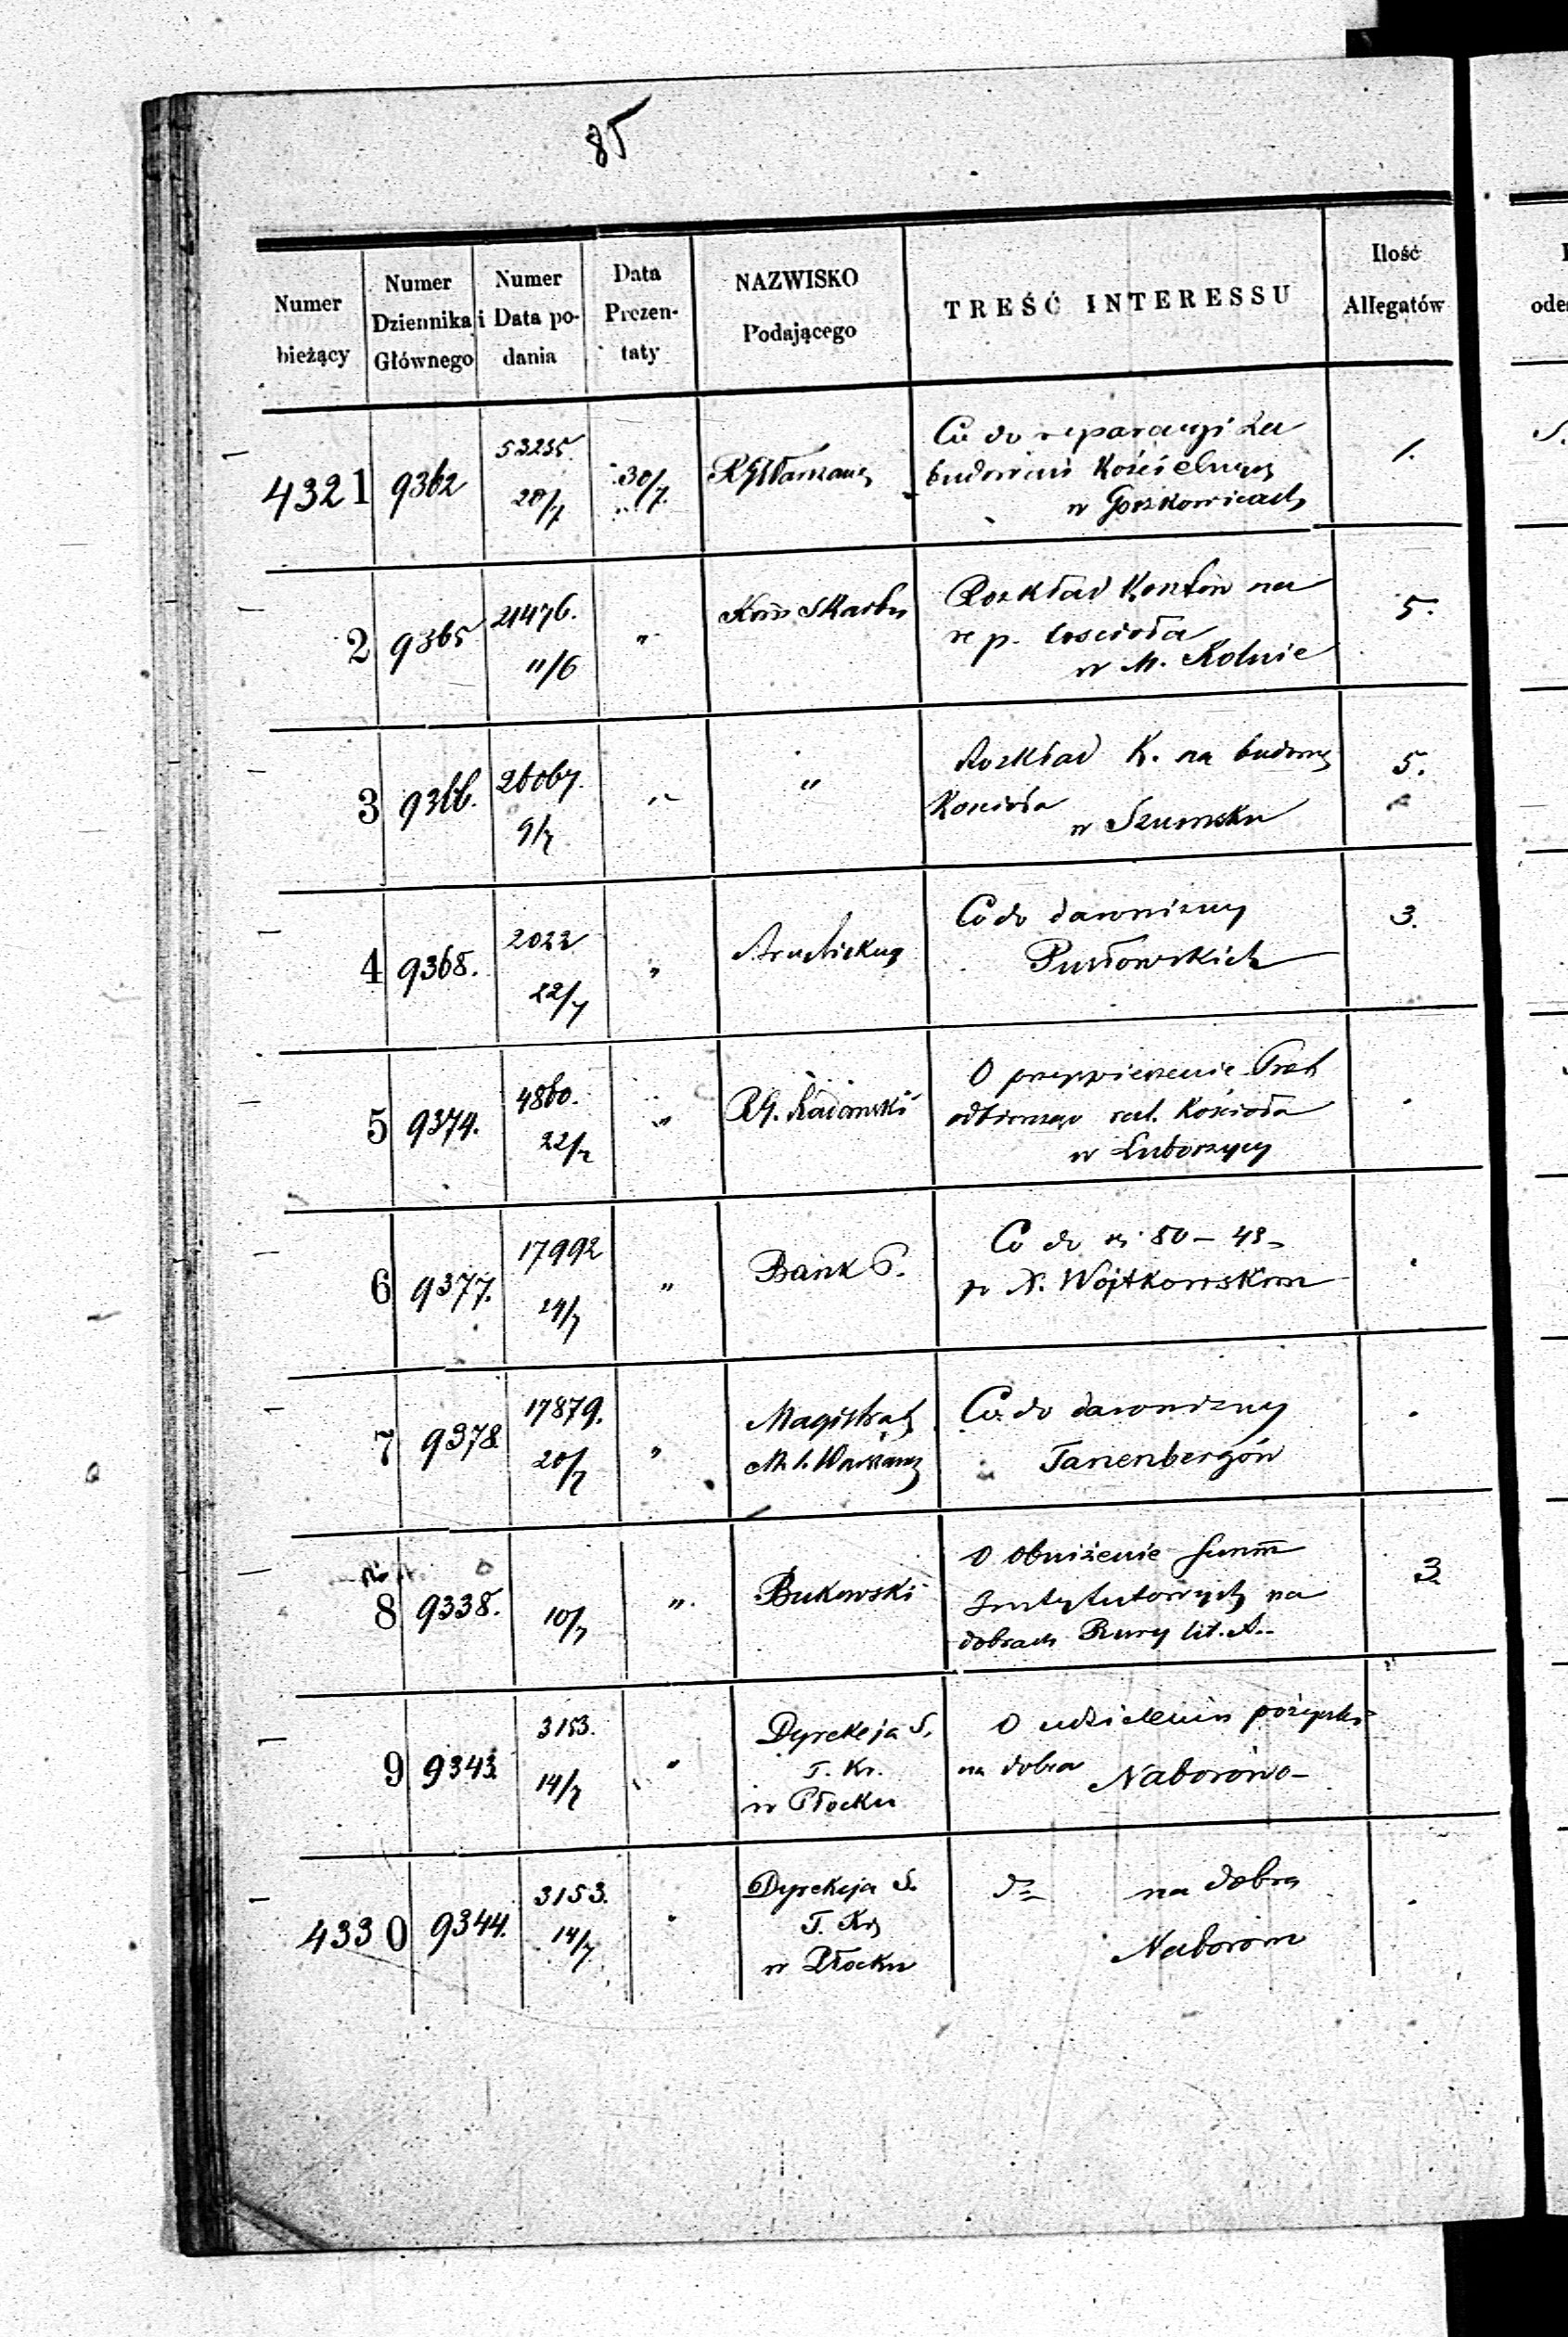 85
Numer bieżący | Numer Dziennika Głównego | Numer i Data podania | Data Prezentaty | NAZWISKO Podającego | TREŚĆ INTERESSU | Ilość Allegatów
4321 | 9362 | 53235. 20/7 | 30/7. | RGWarszaws | Co do reparacyi Za
budowań Kościelnych
w Gorzkowicach | 1.
2 | 9365 | 21476. 11/6 | " | Kom Skarbu | Rozkład Kosztów na
rep. kościoła
w M. Kolnie | 5.
3 | 9366. | 26067. 9/7 | " | " | Rozkład K. na budowę
Kościoła
w Szumsku | 5.
4 | 9368. | 2022 22/7 | " | Co do darowizny
Pusłowskich | 3.
5 | 9374. | 4860. 22/7 | " | RG. Radomski | O przyspieszenie Prot
odbiorczego rest. Kościoła
w Luborzycy | .
6 | 9377. | 17992 24/7 | " | Bank P. | Co do rs 80 – 48
p X. Wojtkowskim | .
7 | 9378 | 17879. 20/7 | " | Magistrat
M. S. Warszawy | Co do darowizny
Tanenbergów | .
8 | 9338. | 10/7 | " | Bukowski | O obniżenie Summ
Instytutowych na
dobrach Rury lit. A.. | 3
9 | 9343. | 3153. 14/7 | " | Dyrekcja S.
T. Kr.
w Płocku | O udzieleniu pożyczki
na dobra Naborowo – | "
4330 | 9344. | 3153. 14/7 | " | Dyrekcja S.
T. Kr
w Płocku | do na dobra
Naborowo | .